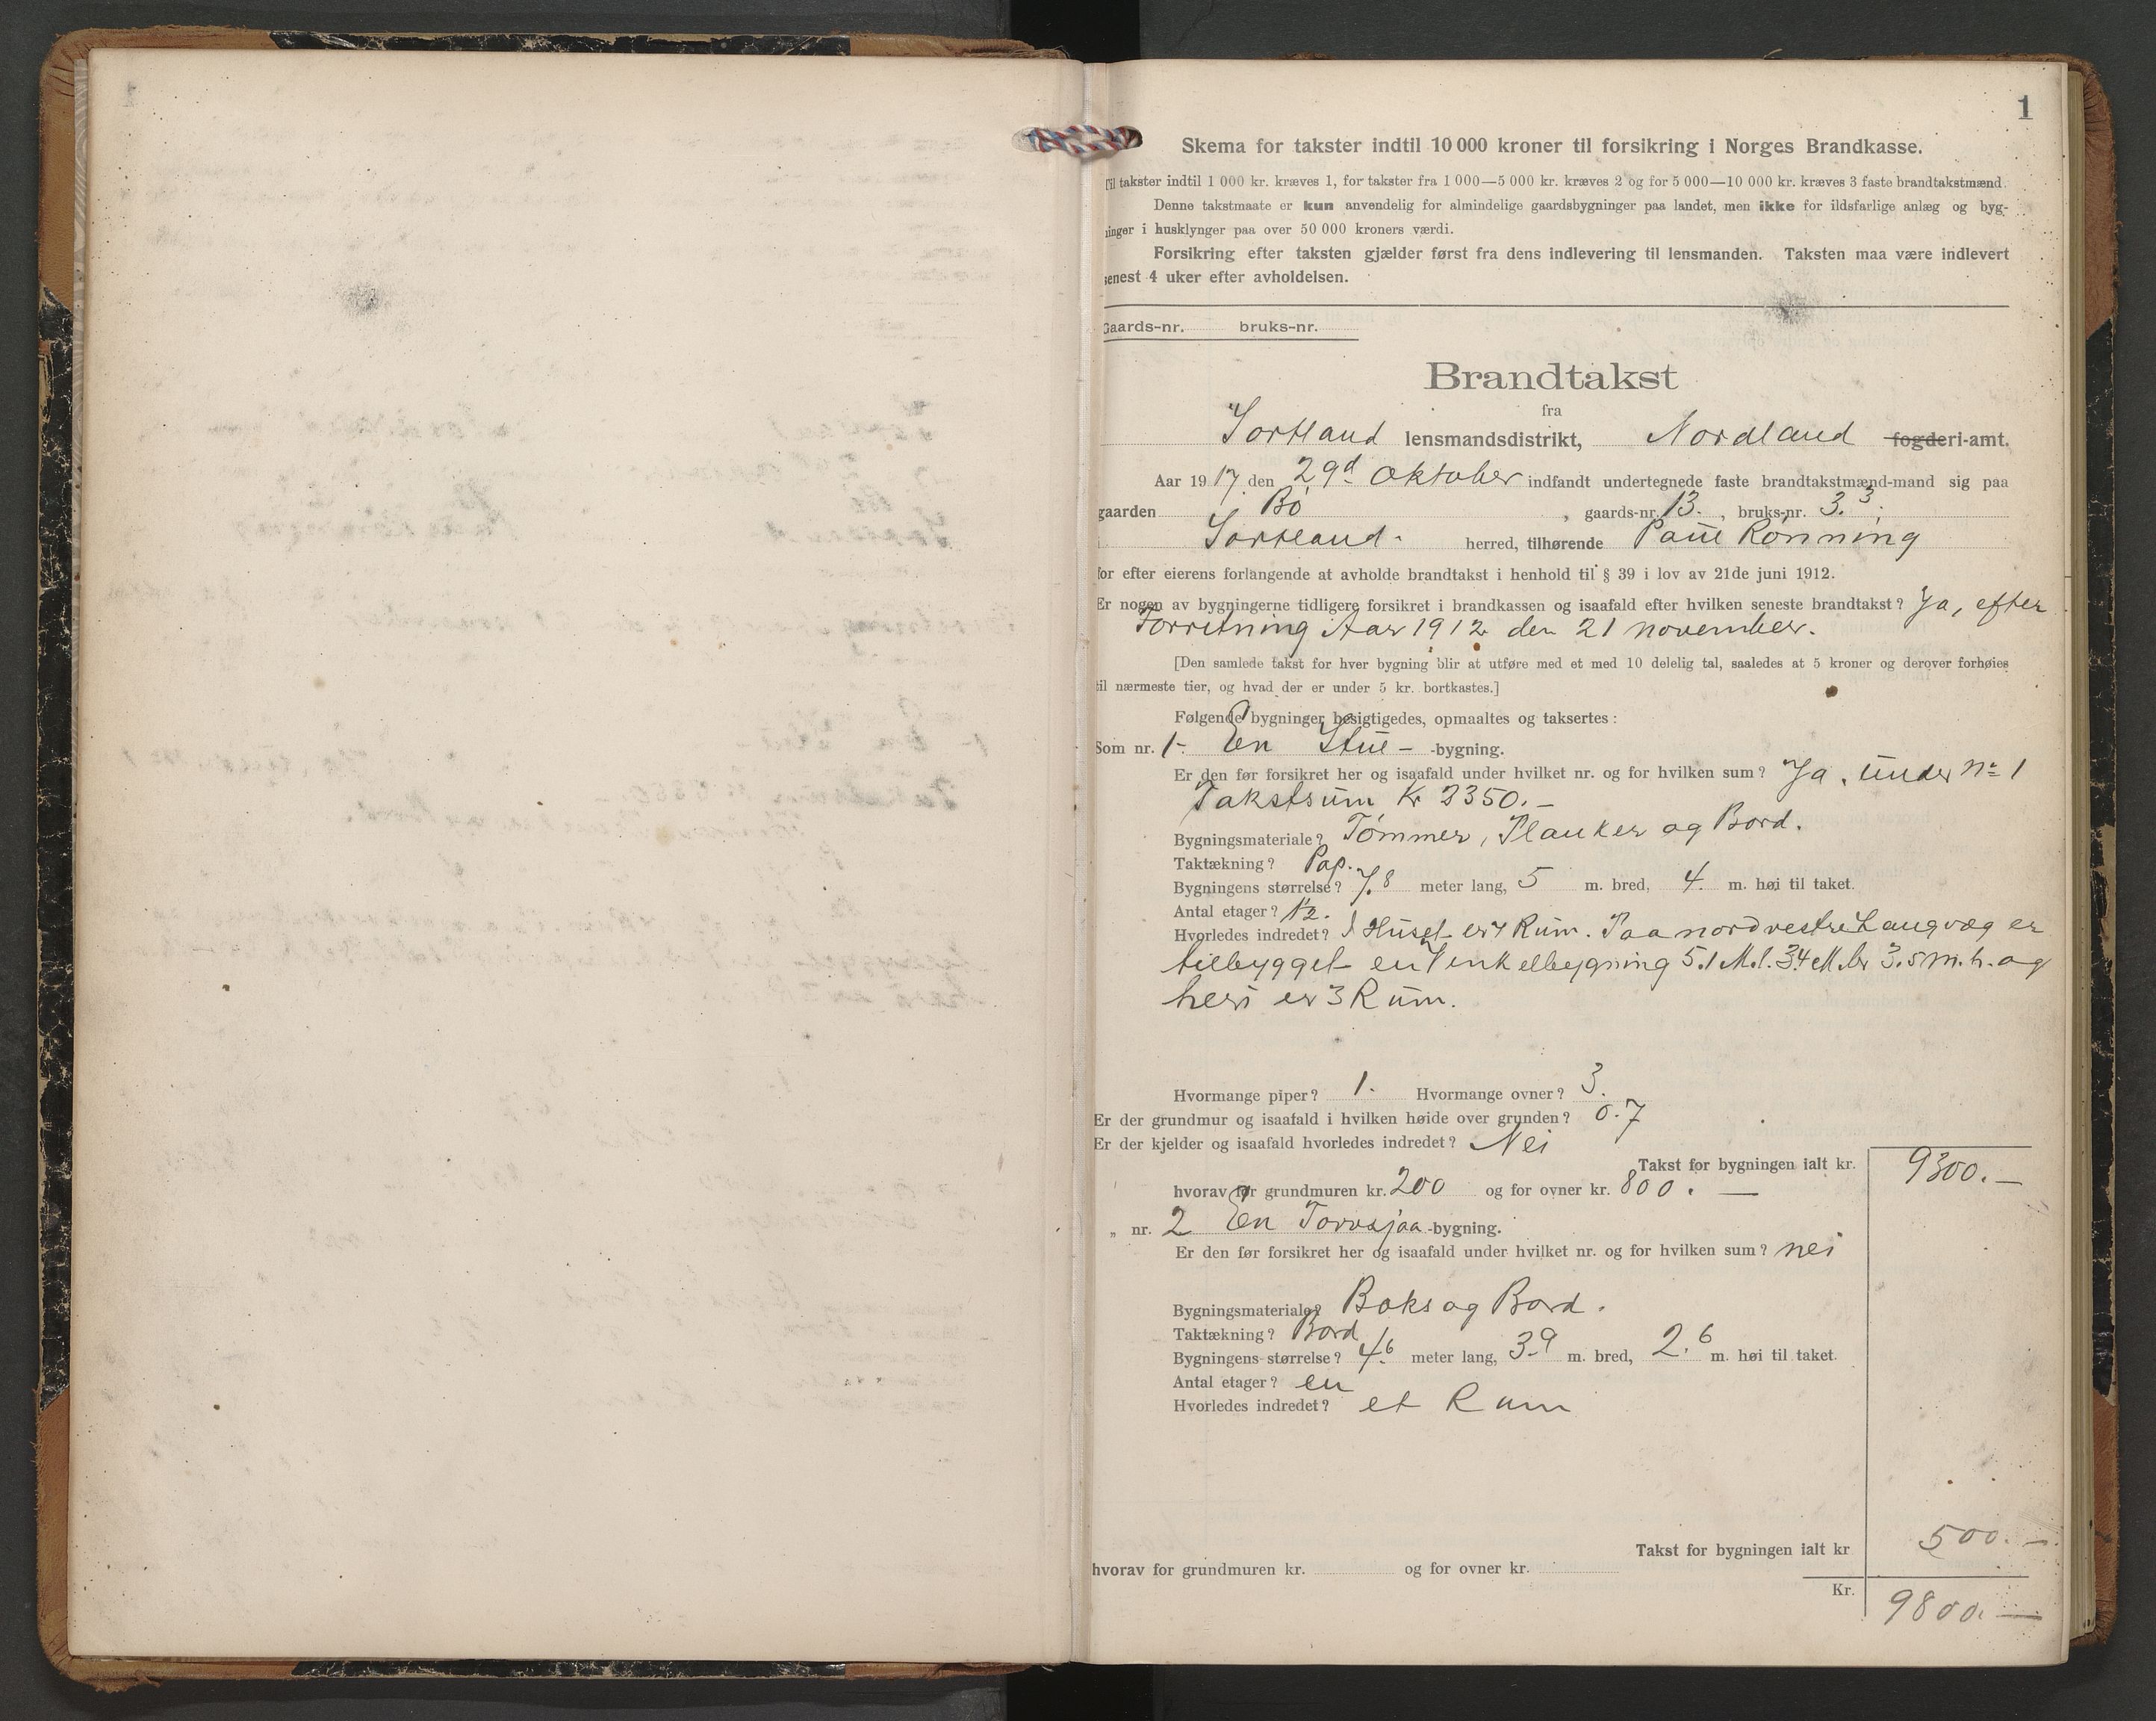 1
Skema for takster indtil 10 000 kroner til forsikring i Norges Brandkasse.
Til takster indtil 1 000 kr. kræves 1, for takster fra 1 000—5 000 kr. kræves 2 og for 5 000—10 000 kr. kræves 3 faste brandtakstmænd.
Denne takstmaate er kun anvendelig for almindelige gaardsbygninger paa landet, men ikke for ildsfarlige anlæg og byg-
ninger i husklynger paa over 50 000 kroners værdi.
Forsikring efter taksten gjælder først fra dens indlevering til lensmanden. Taksten maa være indlevert
senest 4 uker efter avholdelsen.
Gaards-nr. bruks-nr.
Brandtakst
fra
Sortland lensmandsdistrikt, Nordland fogderi-amt.
Aar 1917. den 29d Oktober indfandt undertegnede faste brandtakstmænd-mand sig paa
gaarden Bö , gaards-nr. 13. , bruks-nr. 3.3 ;
i Sortland. herred, tilhørende Paul Rönning
for efter eierens forlangende at avholde brandtakst i henhold til § 39 i lov av 21de juni 1912.
Er nogen av bygningerne tidligere forsikret i brandkassen og isaafald efter hvilken seneste brandtakst? Ja, efter
Forretning Aar 1912 den 21 november.
[Den samlede takst for hver bygning blir at utføre med et med 10 delelig tal, saaledes at 5 kroner og derover forhøies
til nærmeste tier, og hvad der er under 5 kr. bortkastes.]
Følgende bygninger besigtigedes, opmaaltes og taksertes:
Som nr. 1- En Stue- -bygning.
Er den før forsikret her og isaafald under hvilket nr. og for hvilken sum? Ja, under No 1
Takstsum Kr 3350.-
Bygningsmateriale? Tömmer, Planker og Bord.
Taktækning? Pap.
Bygningens størrelse? 7.8 meter lang, 5 m. bred, 4. m. høi til taket.
Antal etager? 1½.
Hvorledes indredet? I Huset er 4 Rum. Paa nordvestre Langvæg er
tilbygget en Vinkelbygning 5.1 M.l. 3.4 M.br 3.5 m.h. og
heri er 3 Rum.
Hvormange piper? 1. Hvormange ovner? 3.
Er der grundmur og isaafald i hvilken høide over grunden? 0.7
Er der kjelder og isaafald hvorledes indredet? Nei
Takst for bygningen ialt kr. 9300.—
hvorav for grundmuren kr. 200 og for ovner kr. 800. —
„ nr. 2 En Torvsjaa -bygning.
Er den før forsikret her og isaafald under hvilket nr. og for hvilken sum? nei
Bygningsmateriale? Boks og Bord.
Taktækning? Bord
Bygningens størrelse? 4.6 meter lang, 3.9 m. bred, 2.6 m. høi til taket.
Antal etager? en
Hvorledes indredet? et Rum
Takst for bygningen ialt kr 500.—
hvorav for grundmuren kr. og for ovner kr.
Kr. 9800.—